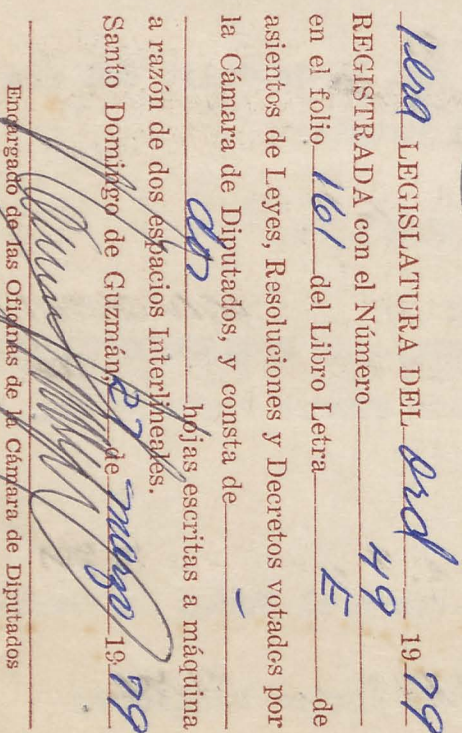 1era LEGISLATURA DEL Ord 1979
REGISTRADA con el Número 49
en el folio 161 del Libro Letra E de
asientos de Leyes, Resoluciones y Decretos votados por
la Cámara de Diputados, y consta de
dos hojas escritas a máquina
a razón de dos espacios Interlineales.
Santo Domingo de Guzmán, 27 de marzo 1979
Encargado de las Oficinas de la Cámara de Diputados